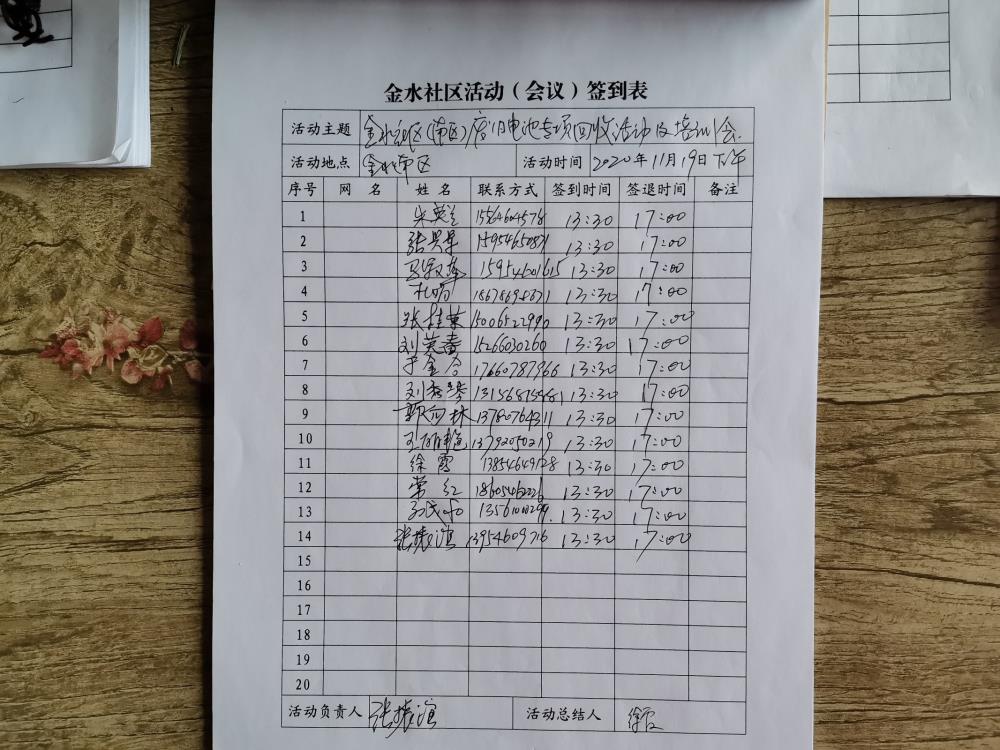 金水社区活动（会议）签到表
活动主题 金水社区(南区)废旧电池专项回收活动及培训会
活动地点 金水南区 活动时间 2020年11月19日下午
序号 网名 姓名 联系方式 签到时间 签退时间 备注
1 朱英兰 13:30 17:00
2 13:30 17:00
3 15954601615 13:30 17:00
4 13:30 17:00
5 张桂荣 15006522990 13:30 17:00
6 刘英 15266030260 13:30 17:00
7 17660787966 13:30 17:00
8 13:30 17:00
9 郭向林 13780764311 13:30 17:00
10 13792050219 13:30 17:00
11 徐霞 13854649128 13:30 17:00
12 常红 13:30 17:00
13 13:30 17:00
14 张振滨 13954609716 13:30 17:00
15
16
17
18
19
20
活动负责人 张振滨 活动总结人 徐霞